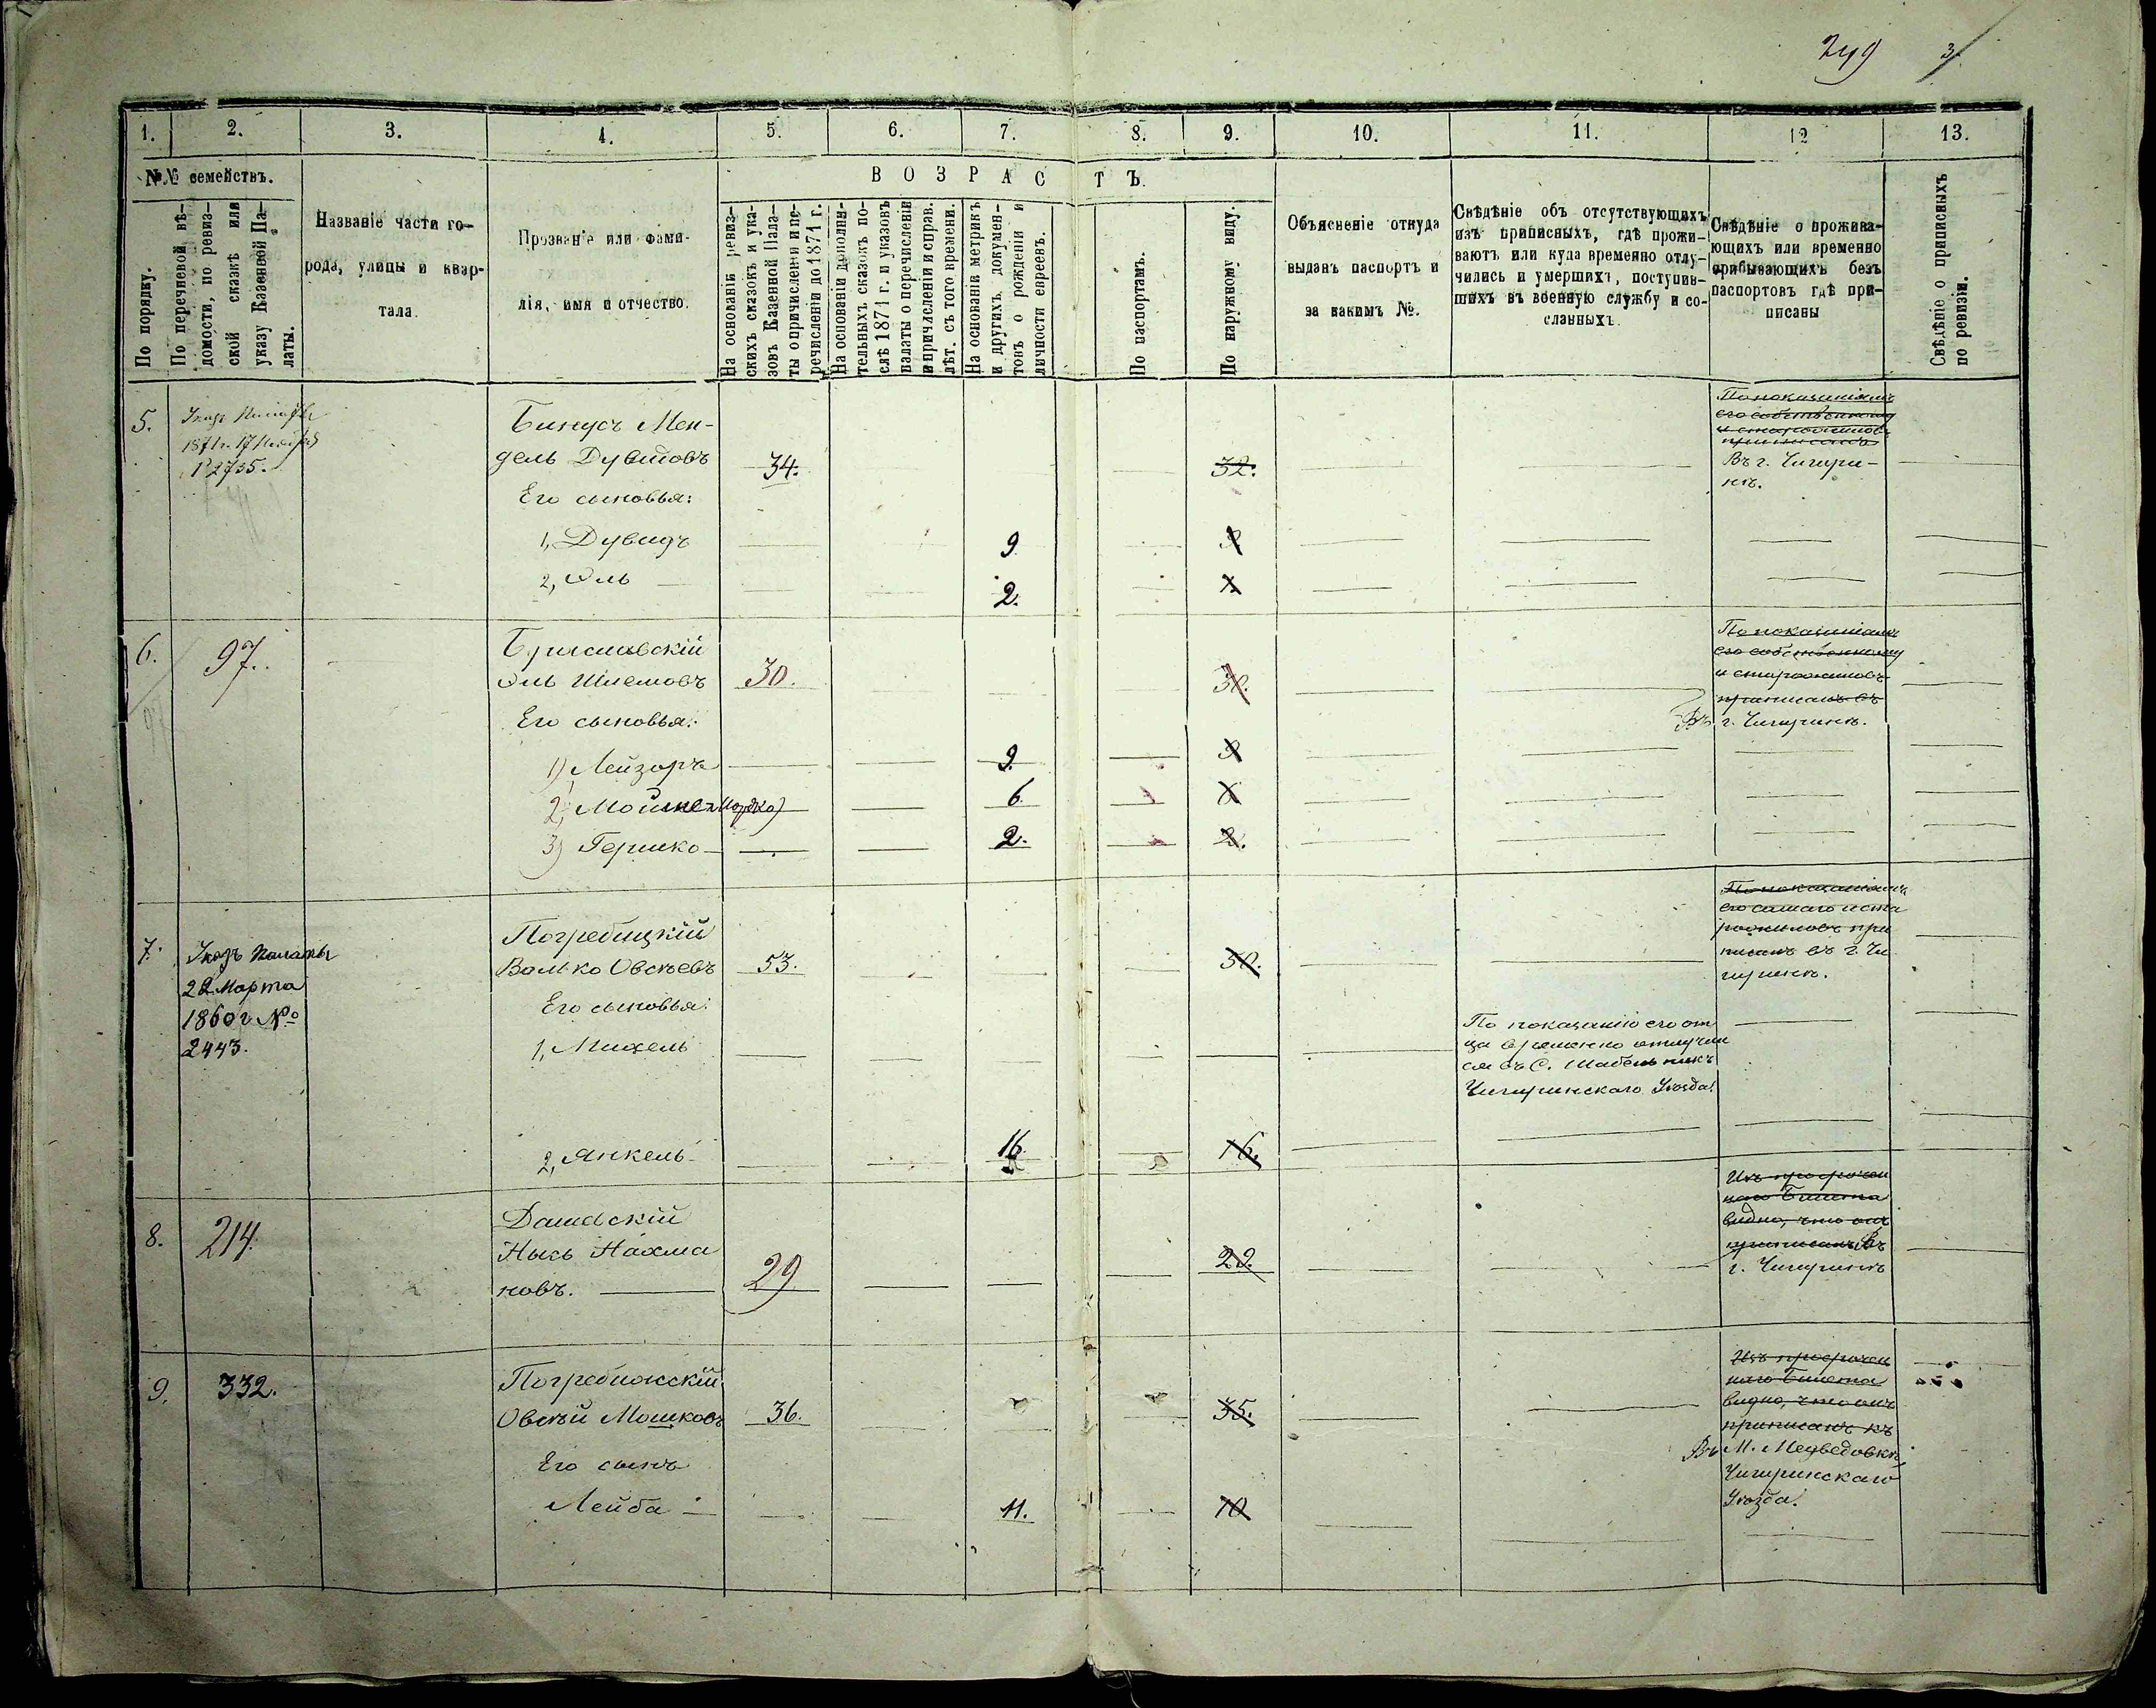 249 3
1. 2. 3. 4. 5. 6. 7. 8. 9. 10. 11. 12 13.
№№ семействъ.
По порядку.
По перечневой вѣ-
домости, по ревиз-
ской сказкѣ или
указу Казенной Па-
латы.
Названіе части го-
рода, улицы и квар-
тала.
Прозваніе или фами-
лія, имя и отчество.
ВОЗРАСТЪ.
На основаніи ревиз-
скихъ сказокъ и ука-
зовъ Казенной Пала-
ты о причисленіи и пе-
речисленіи до 1871 г.
На основаніи дополни-
тельныхъ сказокъ по-
слѣ 1871 г. и указовъ
палаты о перечисленіи
и причисленіи и справ.
лѣт. съ того времени.
На основаніи метрикъ
и другихъ докумен-
товъ о рожденіи и
личности евреевъ.
По паспортамъ.
По наружному виду.
Объясненіе откуда
выданъ паспортъ и
за какимъ №.
Свѣдѣніе объ отсутствующихъ
изъ приписныхъ, гдѣ прожи-
ваютъ или куда временно отлу-
чились и умершихъ, поступив-
шихъ въ военную службу и со-
сланныхъ.
Свѣдѣніе о прожива-
ющихъ или временно
прибывающихъ безъ
паспортовъ гдѣ при-
писаны
Свѣдѣніе о приписныхъ
по ревизіи.
5. Указъ Палаты
1871 г. 17
№ 2735.
Бинусъ Мен-
дель Дувидовъ 34. 32.
По показаніямъ
его собственному
и старожиловъ
приписанъ
Въ г. Чигири-
нѣ.
Его сыновья:
1, Дувидъ 9
2, Эль 2.
6. 97.
Бриславскій
Эль Шлемовъ 30. 30.
По показаніямъ
его собственному
и старожиловъ
приписанъ въ
Въ г. Чигиринѣ.
Его сыновья:
1) Лейзоръ 9. 9
2) Мошке-Мордко) 6. 6
3) Гершко 2. 2.
7. Указъ Палаты
22 Марта
1860 г №
2443.
Погребицкій
Волько Овсѣевъ 53. 50.
По показаніямъ
его самаго и ста
рожиловъ при
писанъ въ г. Чи
гиринѣ.
Его сыновья:
1, Михель
По показанію его от
ца временно отлучил
ся въ С. Шабельникъ
Чигиринскаго Уѣзда.
2, Янкель 16. 16.
8. 214.
Дашевскій
Нысь Нахма
новъ. 29 29.
Изъ просрочен
наго Билета
видно, что онъ
приписанъ Въ
г. Чигиринѣ
9. 332.
Погребижскій
Овсѣй Мошковъ 36. 35.
Изъ просрочен
наго Билета
видно, что онъ
приписанъ къ
Въ М. Медведовкѣ
Чигиринскаго
Уѣзда.
Его сынъ
Лейба 11. 10